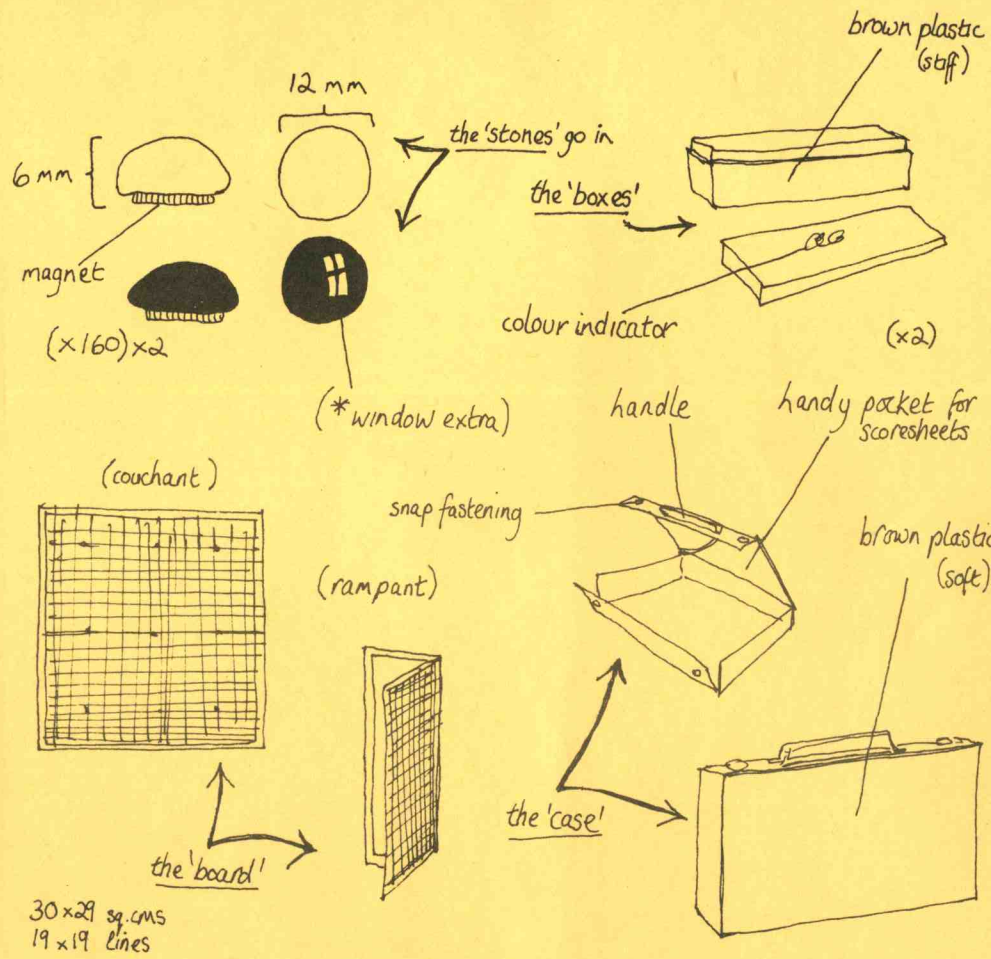 12 mm
6 mm
magnet
(x160)x2
(*window extra)
the 'stones' go in
the 'boxes'
brown plastic
(stiff)
colour indicator
(x2)
(couchant)
(rampant)
the 'board'
30x29 sq.cms
19x19 lines
handle
handy pocket for
scoresheets
snap fastening
brown plastic
(soft)
the 'case'